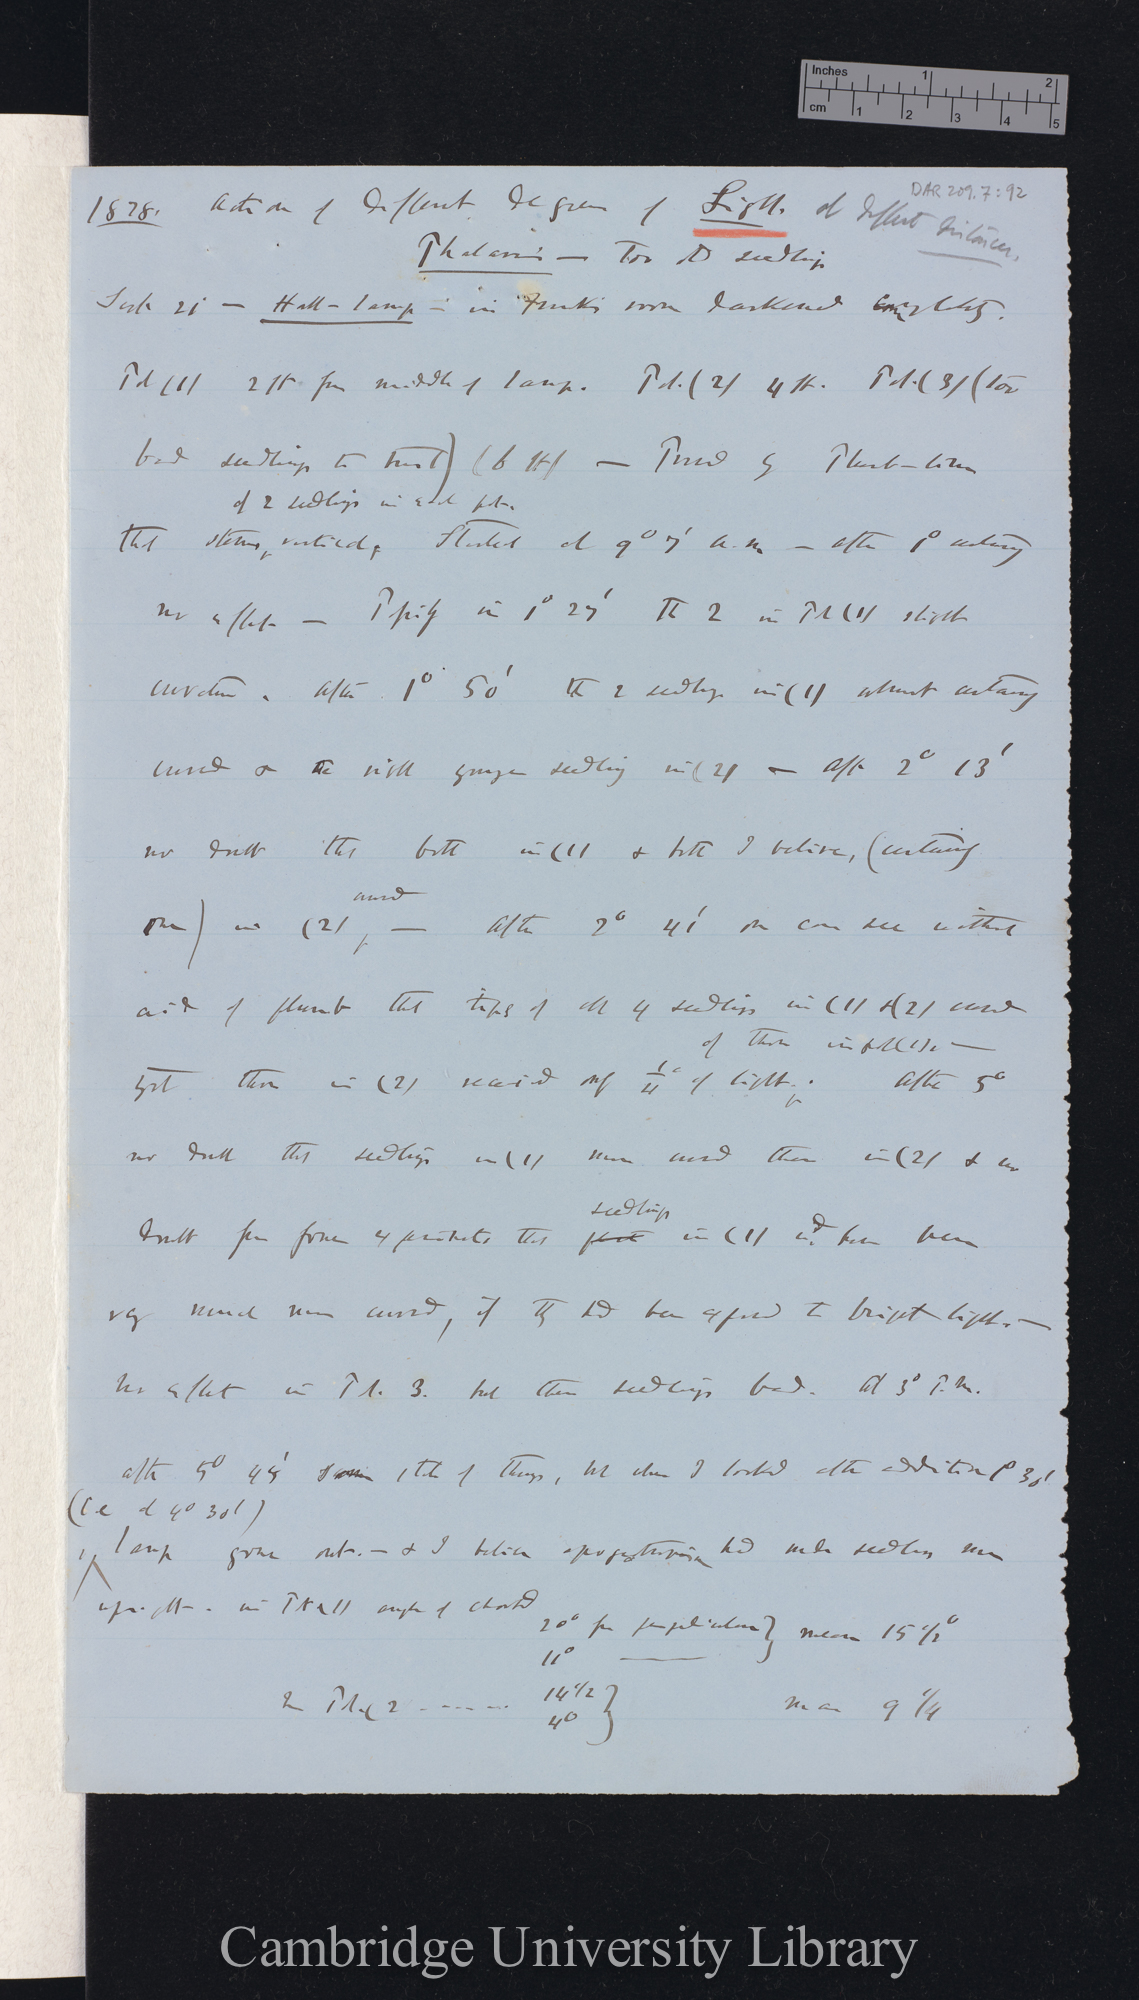 Inches 1 2
cm 1 2 3 4 5
DAR 209.7:92
1878. Action of different degrees of Light. at different distances.
Phalaris — Too old seedlings
Sept 21 — Hall-lamp — in Frank's room darkened completely.
Pot (1) 2 ft from middle of lamp. Pot. (2) 4 ft. Pot. (3) (too
bad seedlings to trust) (6 ft) — Proved by Plumb-line
of 2 seedlings in each pot.
that stems, vertical, Started at 9° 7' a.m — after 1° certainly
no effect — in 1° 27' the 2 in Pot (1) slight
curvature. after 1° 50' the 2 seedlings in (1) almost certainly
curved & the right younger seedling in (2) — after 2° 13'
no doubt that both in (1) & both I believe, (certainly
curved
one) in (2), — After 2° 41' one can see without
aid of plumb that tips of all 4 seedlings in (1) & (2) curved
of those in pot (1). —
yet those in (2) received only 1/4 of light. After 5°
no doubt that seedlings in (1) more curved than in (2) & no
seedlings
doubt from former experiments that in (1) wd. have been
very much more curved, if they had been exposed to bright light. —
No effect in Pot. 3. but these seedlings bad. At 3° P.m.
after 5° 45' same state of things, but when I looked after additional 1° 30'
(i.e at 4° 30')
lamp gone out. — & I believe apogeotropism had made seedlings more
upright. in Pot (1) angle of
20° from perpendicular } mean 15 1/2°
11° ———
In Pot. (2 ------ 14 1/2 } mean 9 1/4
4°
Cambridge University Library